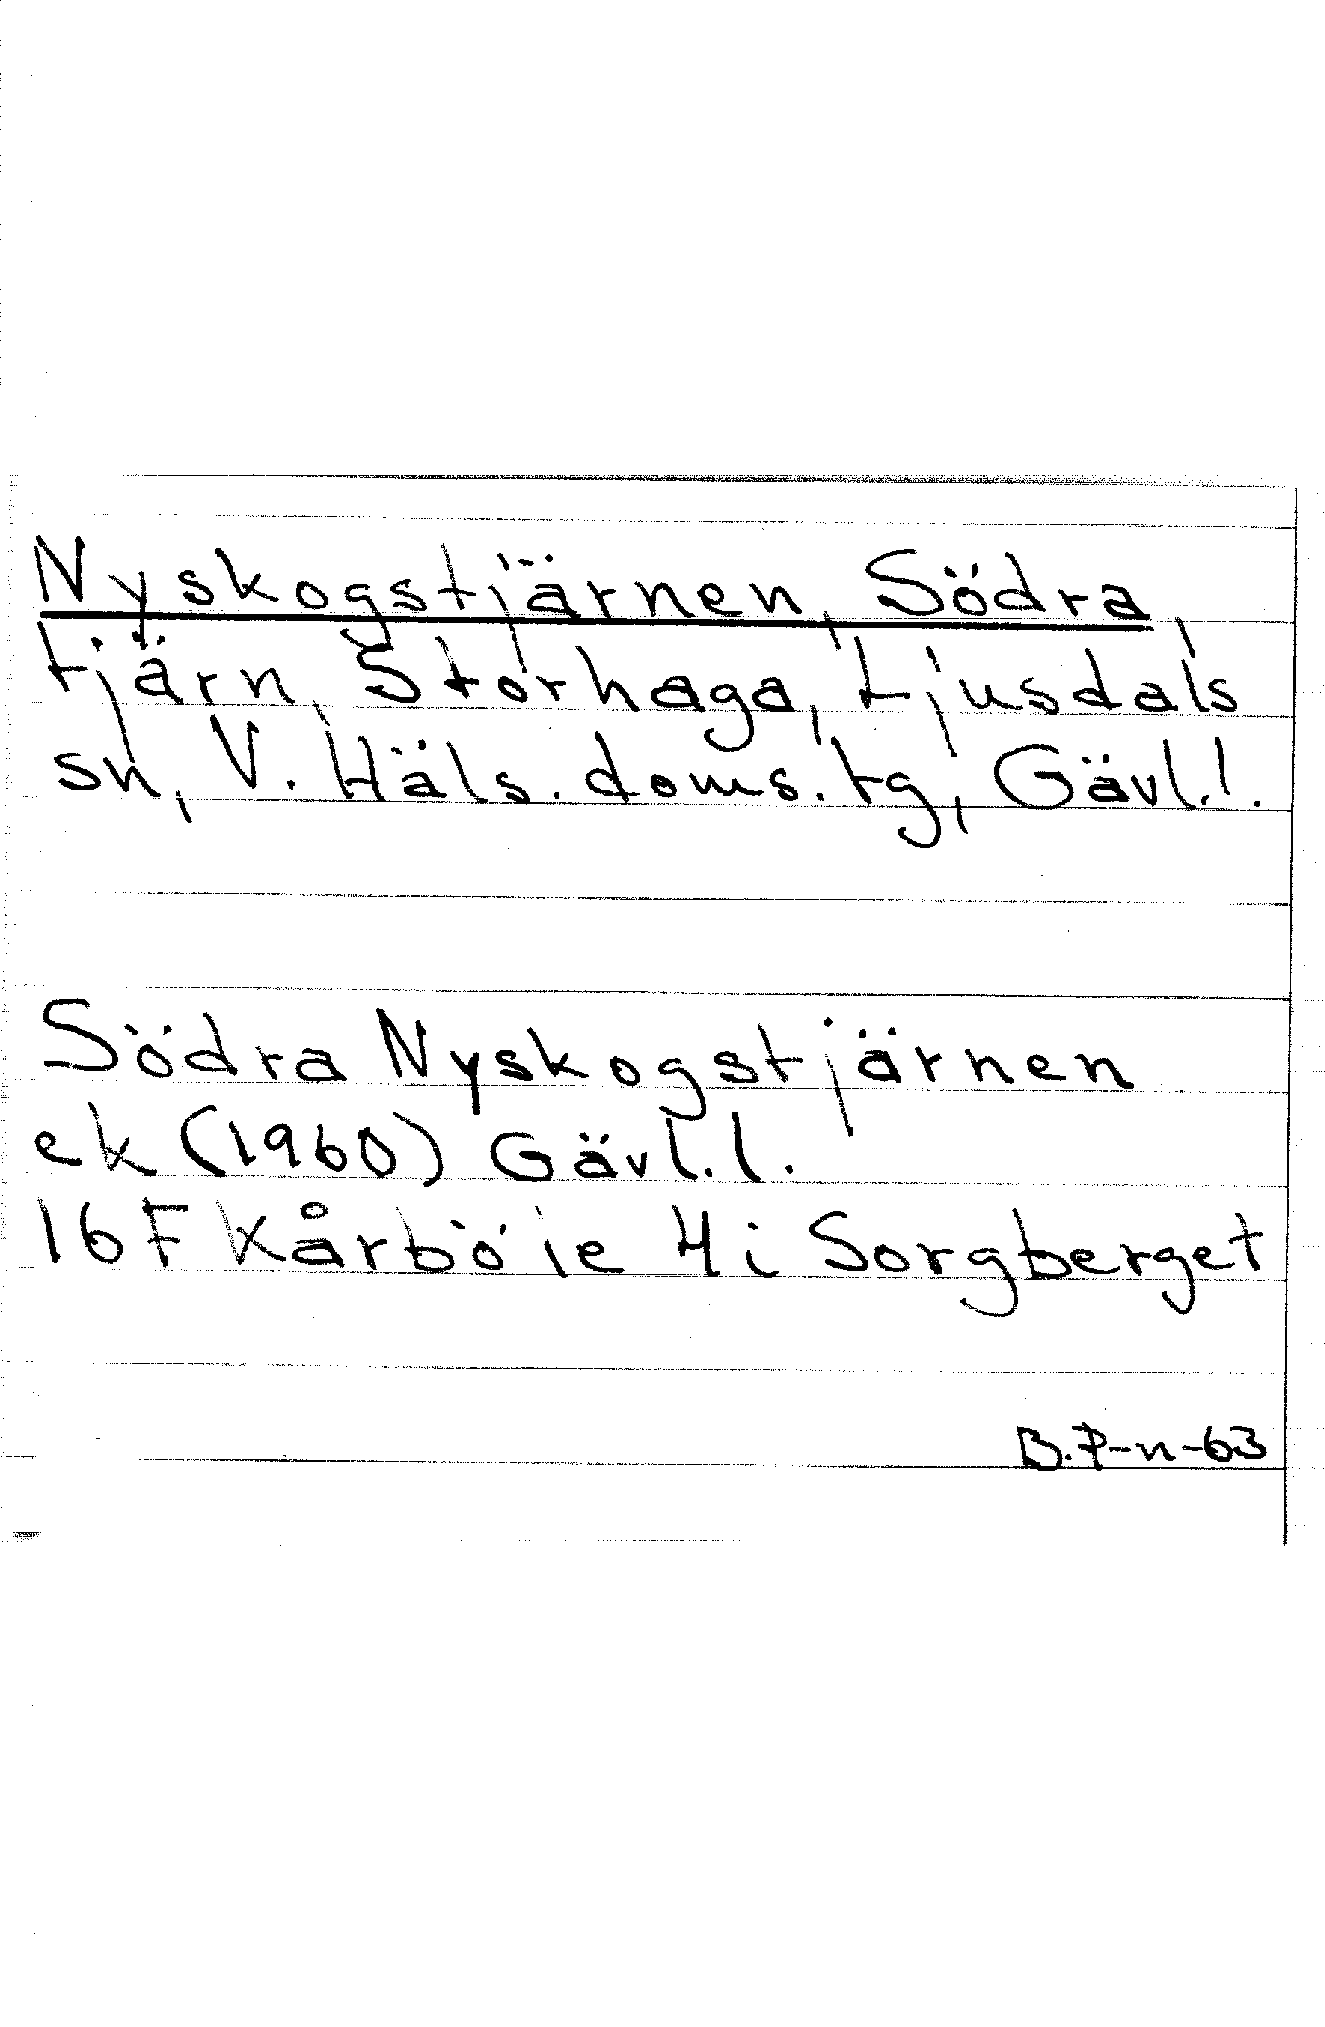 Nyskogstjärnen, Södra,
tjärn, Storhaga, Ljusdals
sn, V. Häls. doms. tg, Gävl. l.
Södra Nyskogstjärnen
ek (1960) Gävl. l.
16F Kårbö 1e 4i Sorgberget
B.P-n-63